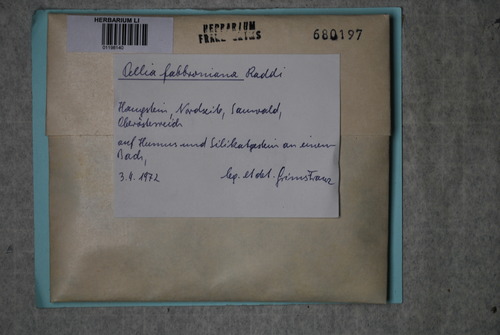 HERBARIUM LI
01198140
HERBARIUM
FRANZ GRIMS
680197
Pellia fabbroniana Raddi
Haugstein, Nordseite, Sauwald,
Oberösterreich
auf Humus und Silikatgestein an einem
Bach,
3.9.1972 leg. et det. Grims Franz